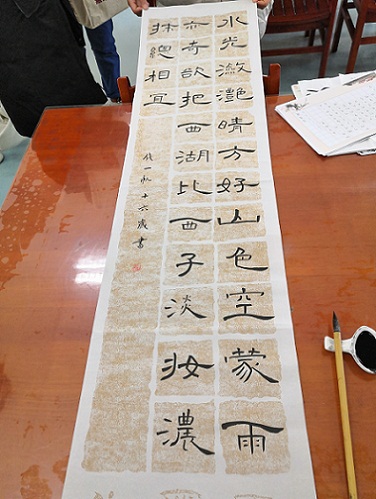 水光瀲灩晴方好山色空蒙雨
亦奇欲把西湖比西子淡妝濃
抹總相宜
十六歲書